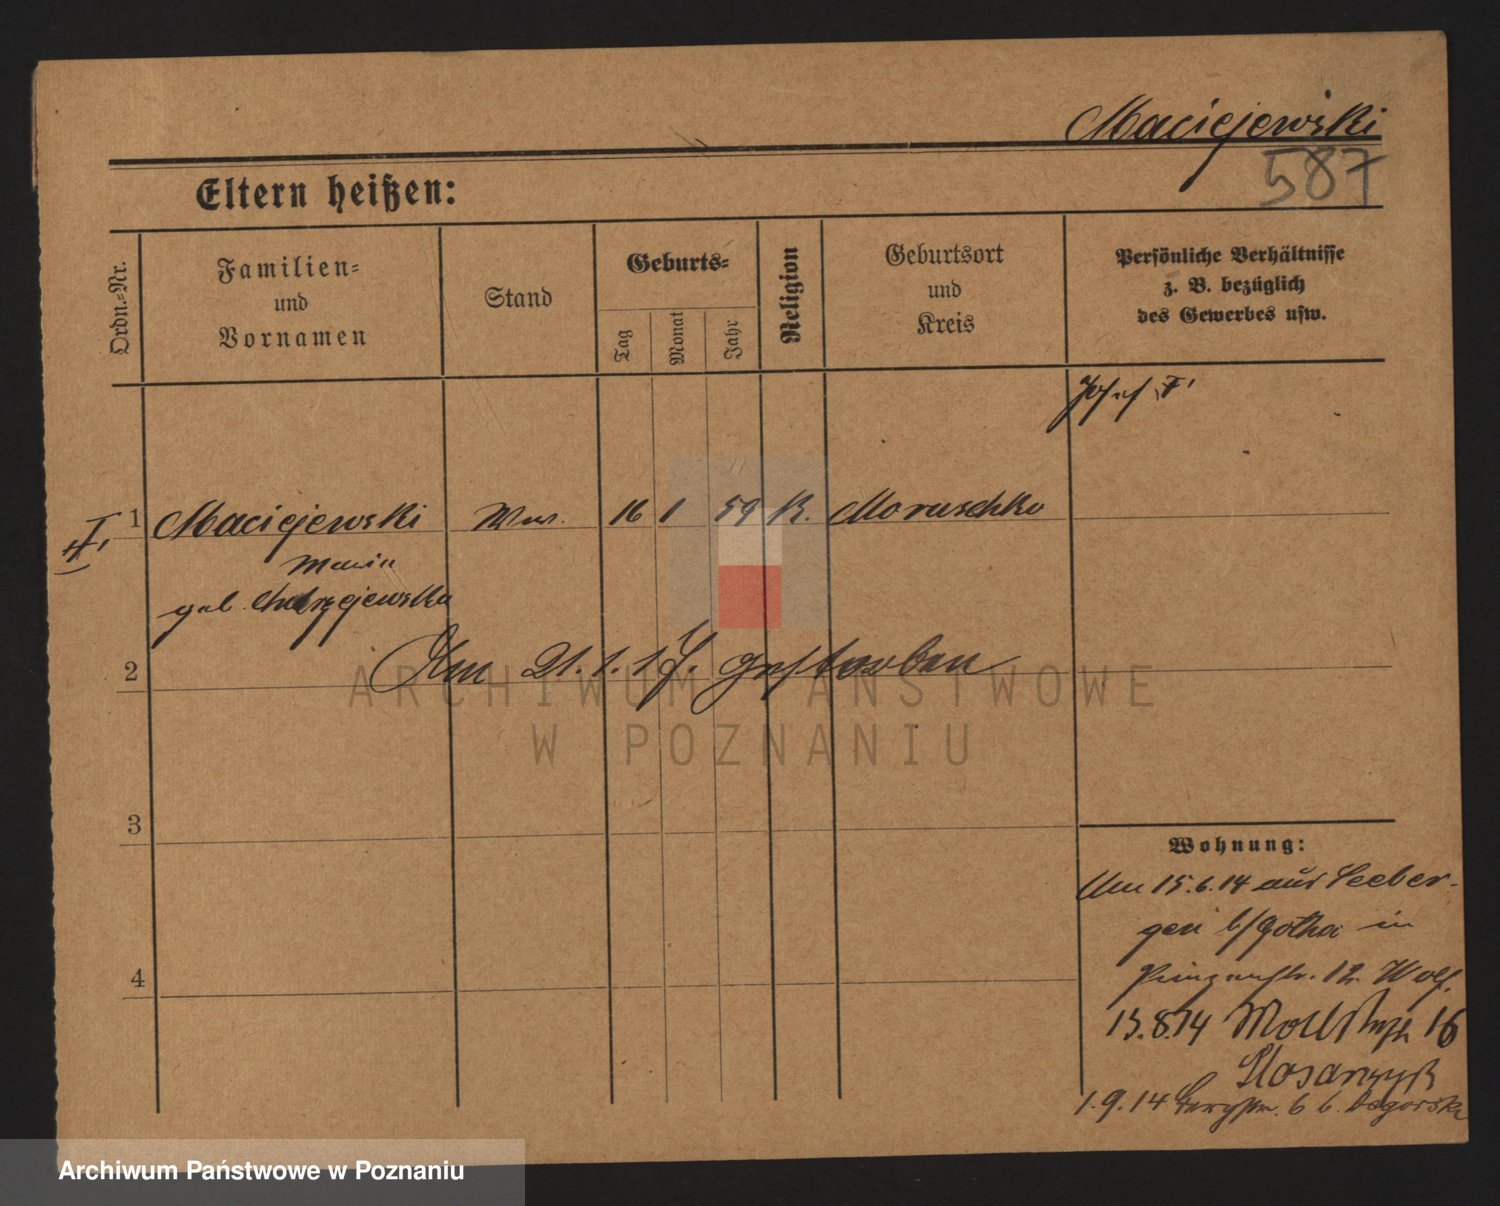 Maciejewski
587
Eltern heißen:
Ordn.-Nr.
Familien-
und
Vornamen
Stand
Geburts-
Tag
Monat
Jahr
Religion
Geburtsort
und
Kreis
Persönliche Verhältnisse
z. B. bezüglich
des Gewerbes usw.
Josef
I, 1 Maciejewski Ww. 16 1 59 K. Moraschko
Marie
geb. Andrzejewska
Am 21.1.17. gestorben
2
ARCHIWUM PAŃSTWOWE
W POZNANIU
3
4
Wohnung:
Am 15.6.14 aus Seeber-
gen b/Gotha in
12. Wolf.
15.8.14 16
1.9.14 6 b.
Archiwum Państwowe w Poznaniu